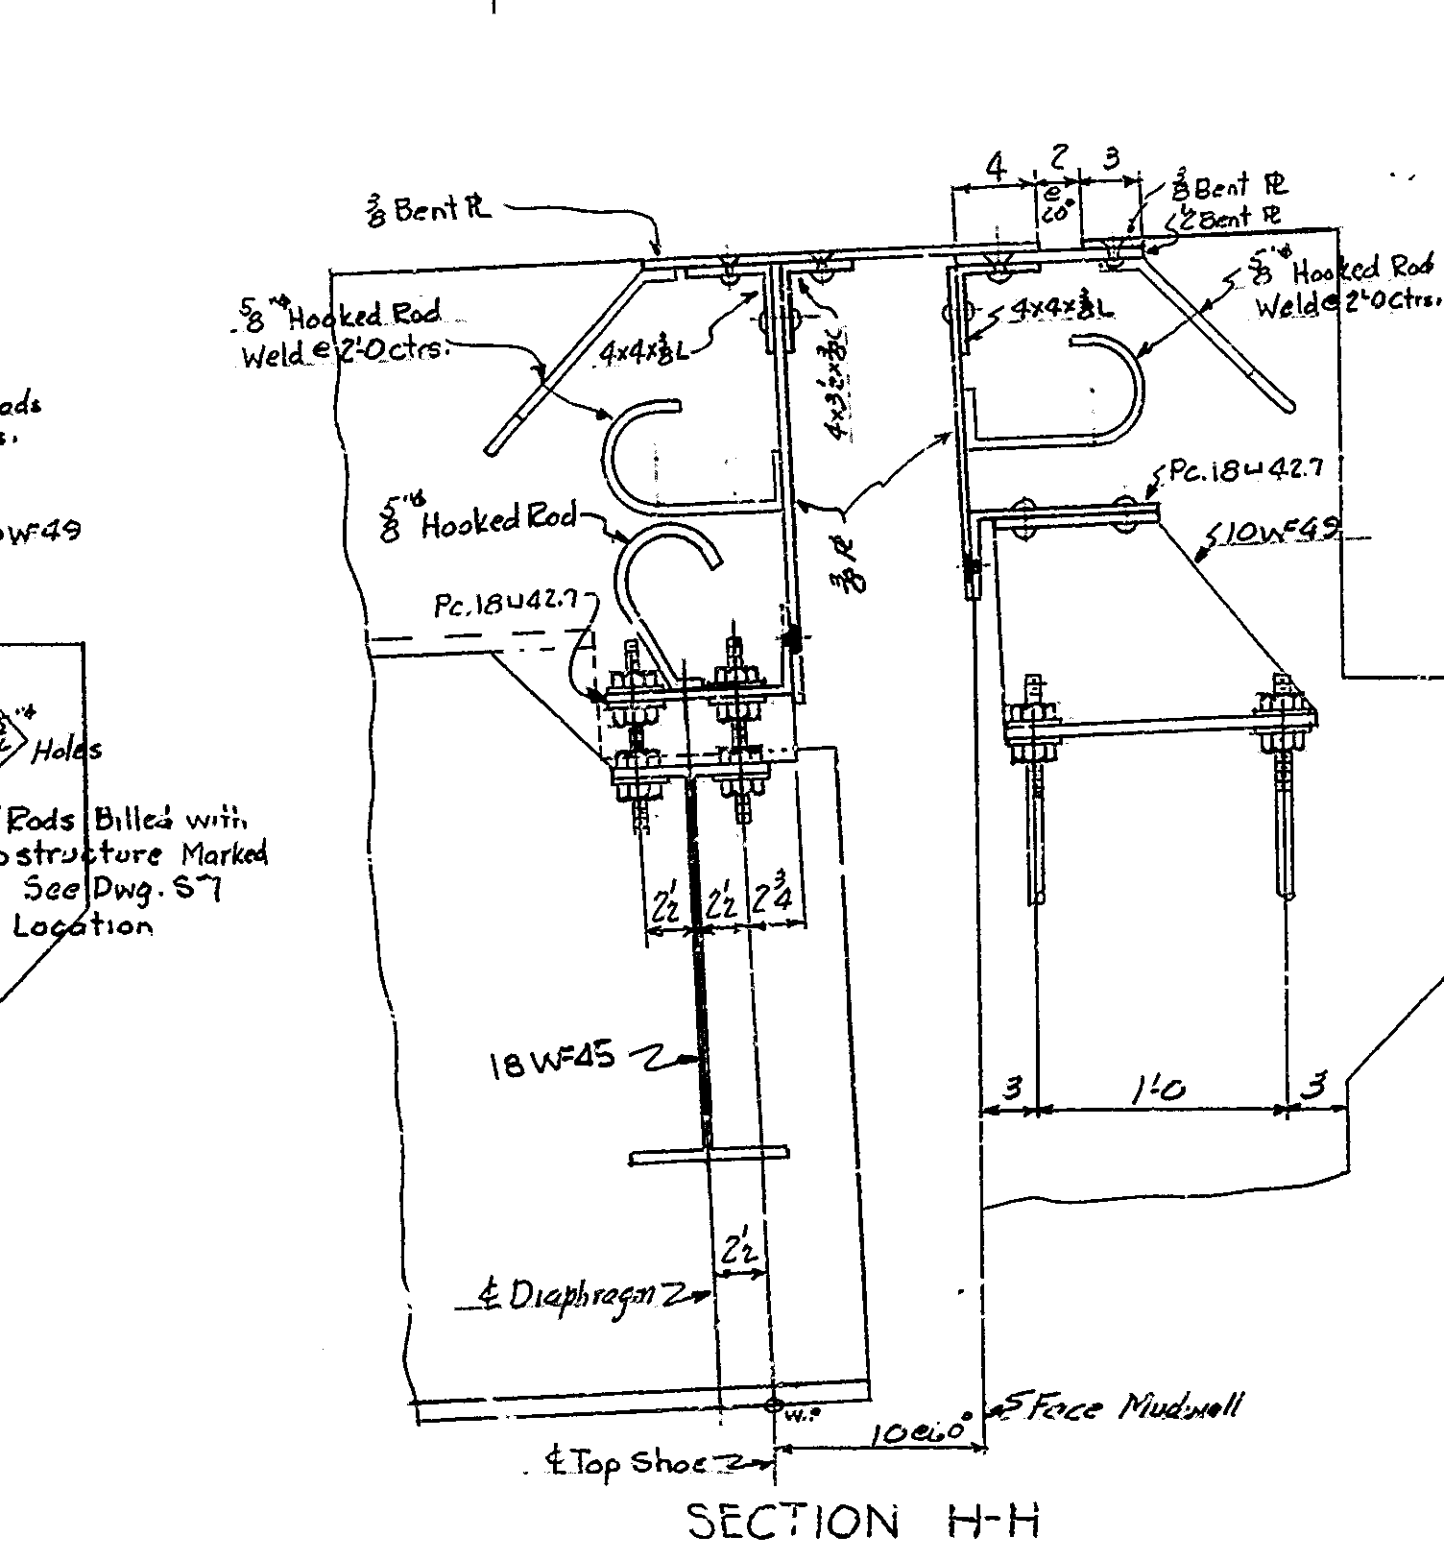 4 2 3
@
60°
3/8 Bent PL
1/2 Bent PL
3/8 Bent PL
5/8"ø Hooked Rod
Weld @ 2'-0 ctrs.
5/8"ø Hooked Rod
Weld @ 2'-0 Ctrs.
4x4x3/8 L
4x3 1/2x3/8 L
4x4x3/8 L
ads
s.
Pc. 18 ⊔ 42.7
5/8"ø Hooked Rod
W=49
10 W=49
3/8 PL
Pc. 18 ⊔ 42.7
Holes
Rods Billed with
structure Marked
See Dwg. S-7
Location
2 1/2 2 1/2 2 3/4
18 W=45
3 1'-0 3
2 1/2
℄ Diaphragm
W.P.
Face Mudwall
10 @ 60°
℄ Top Shoe
SECTION H-H